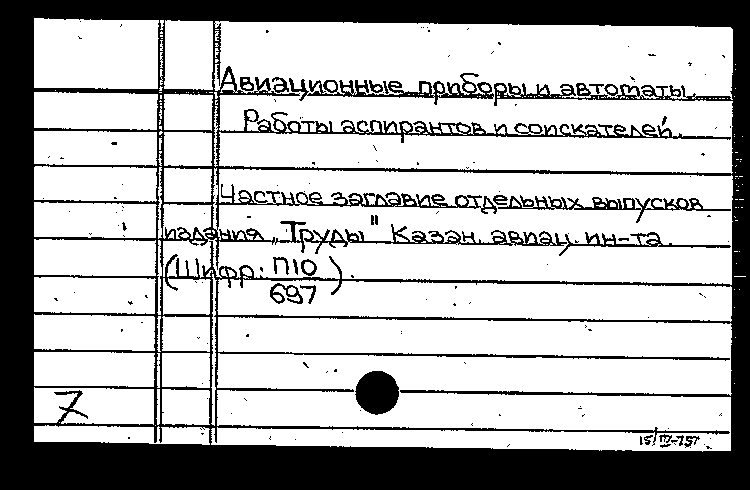 Авиационные приборы и автоматы.
Работы аспирантов и соискателей.
Частное заглавие отдельных выпусков
издания „Труды" Казан. авиац. ин-та.
(Шифр: П10
697 ).
7
15/IV-75г